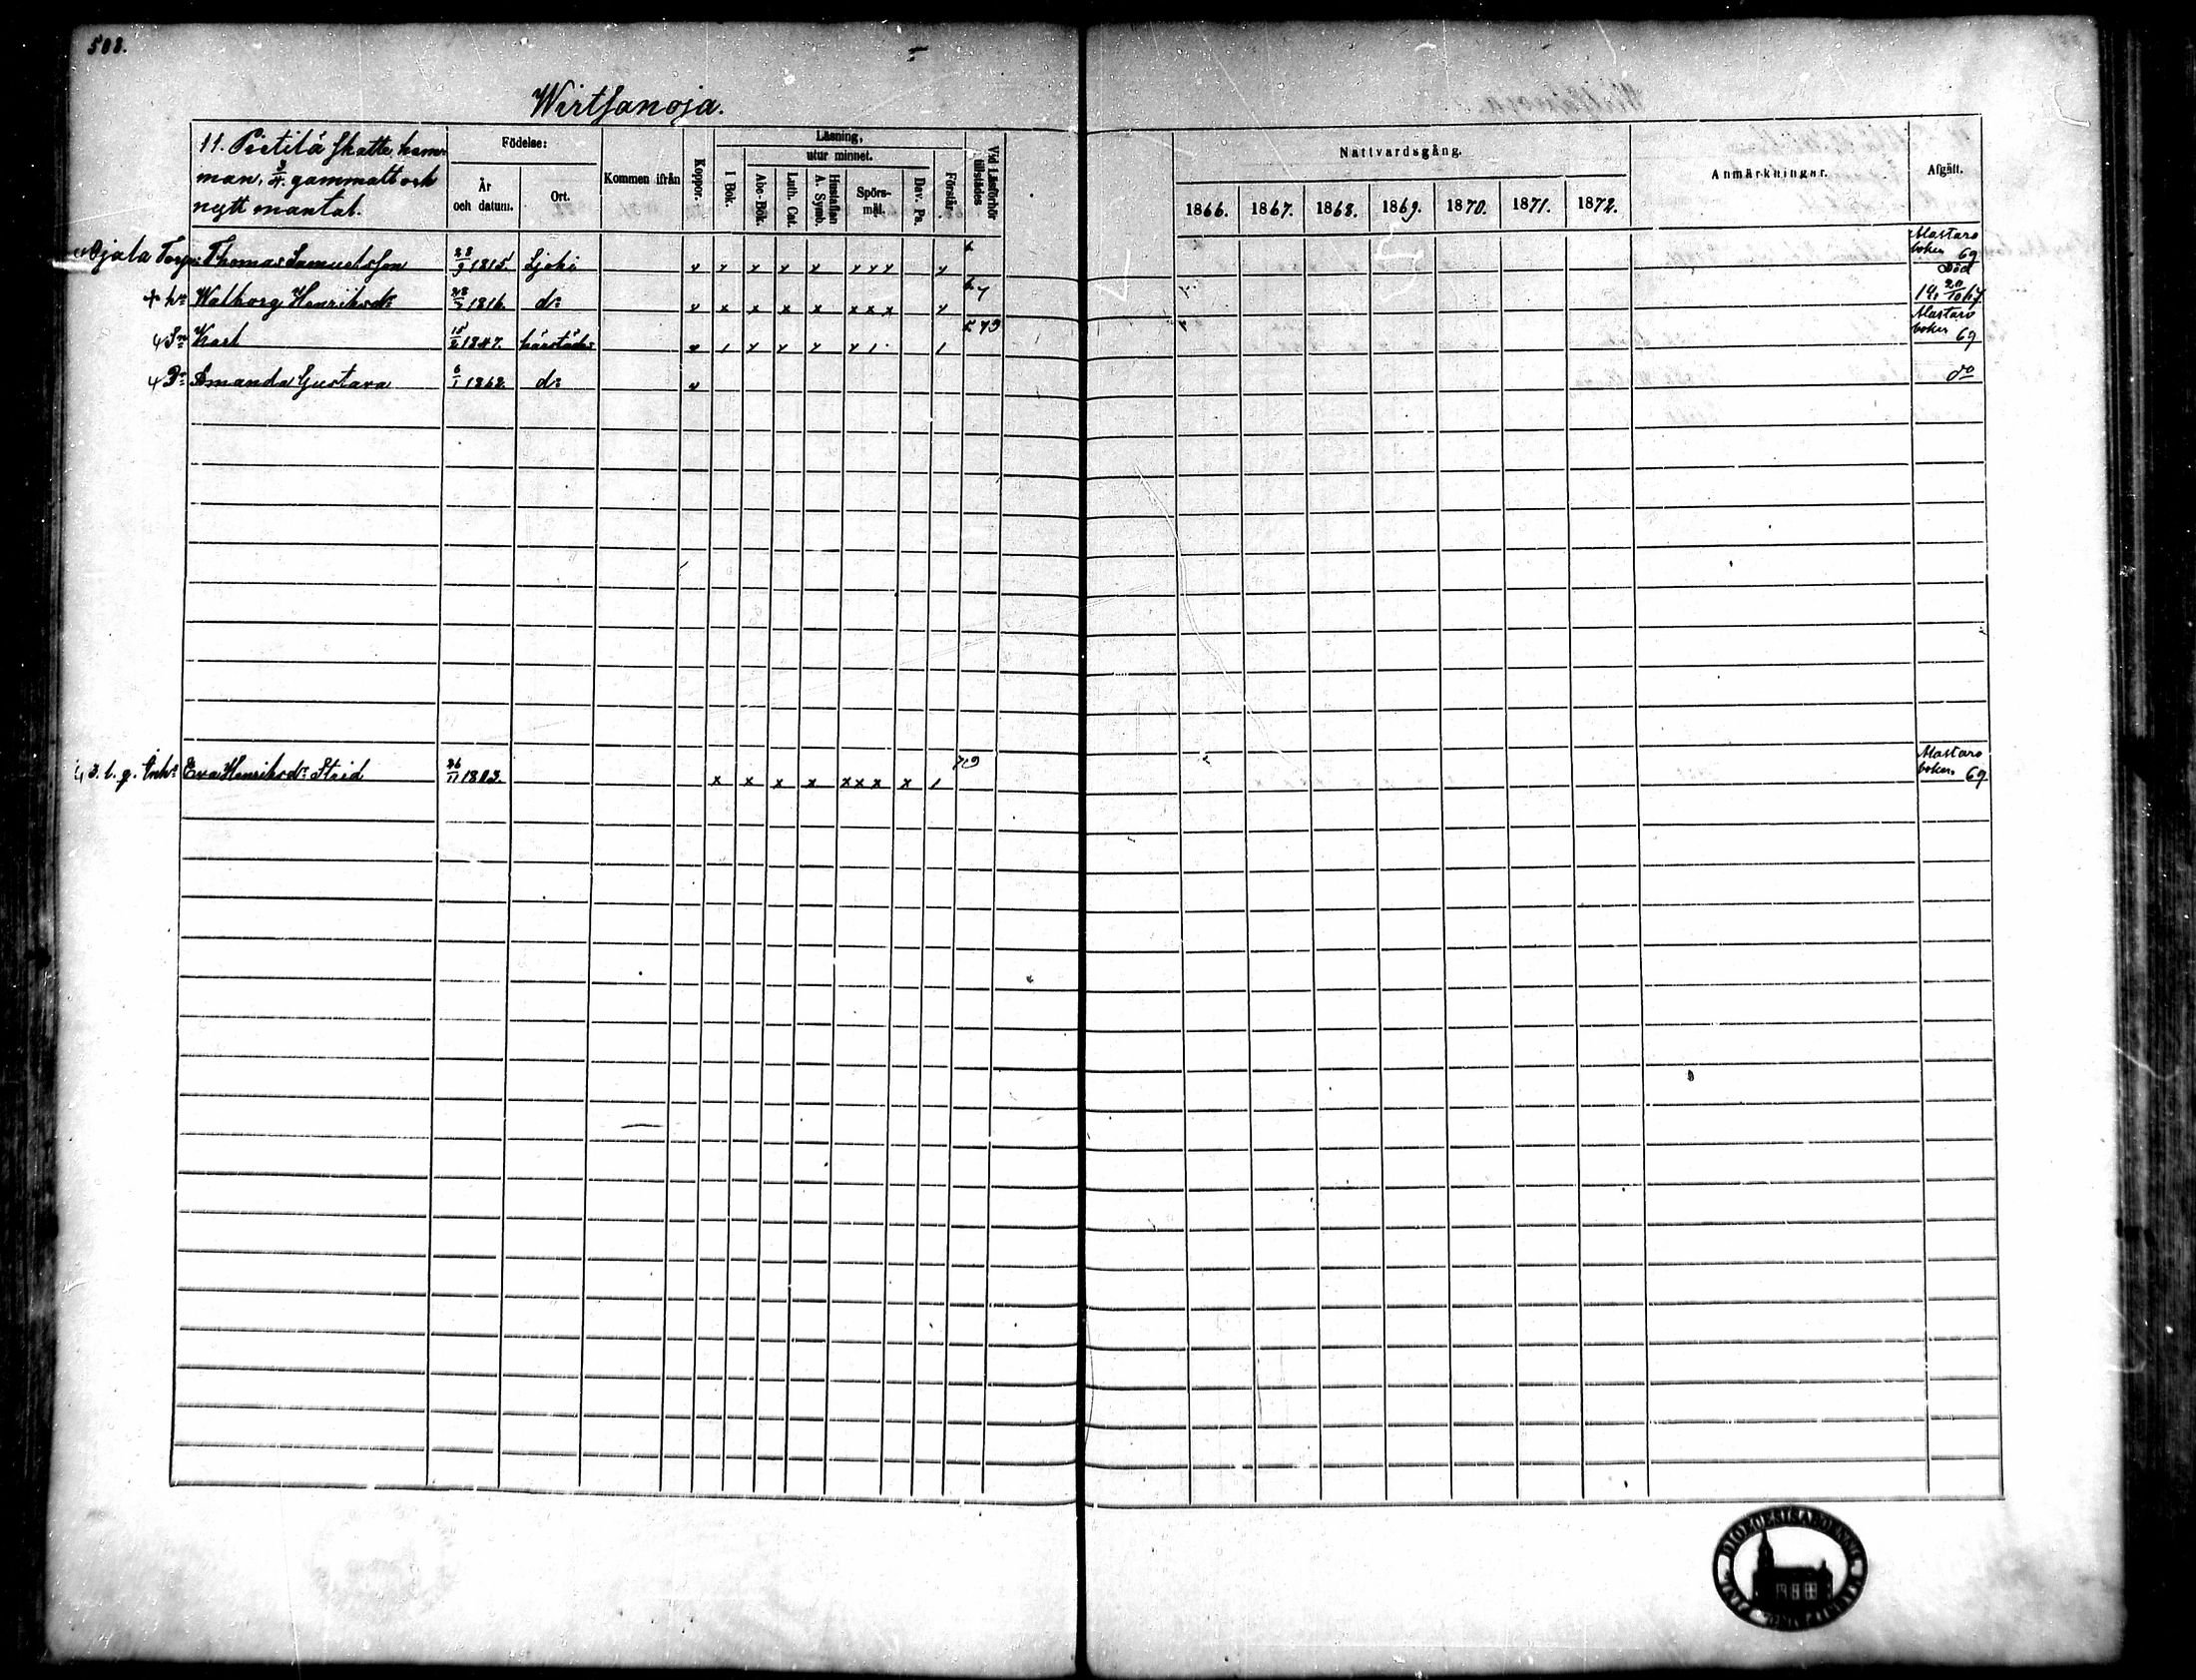 508.
Wirtsanoja.
11. Pietilä skatte hem-
man, 3/4 gammalt och
nytt mantal.
Födelse:
År
och datum.
Ort.
Kommen ifrån
Koppor.
Läsning,
utur minnet.
I Bok.
Abc-Bok.
Luth. Cat.
Hustaflan
A. Symb.
Spörs-
mål.
Dav. Ps.
Förstår.
Vid Läsförhör
tillstädes
Nattvardsgång.
1866. 1867. 1868. 1869. 1870. 1871. 1872.
Anmärkningar.
Afgått.
Ojala Torp: Thomas Samuelsson 28/9 1815. Ljoki v x x x x x x x x Alastaro boken 69
hu Walborg Henriksdr 1816. do v x x x x x x x x Död 20/10 67
Sn Karl 15/2 1847. härstädes v 1 x x x x 1 1 79 Alastaro boken 69
Dr Amanda Gustava 6/1 1862 do v do
Inh: Eva Henriksdr Strid 26/11 1803. x x x x x x x x 1 79 Alastaro boken 69
DIOECESIS ABOENSIS